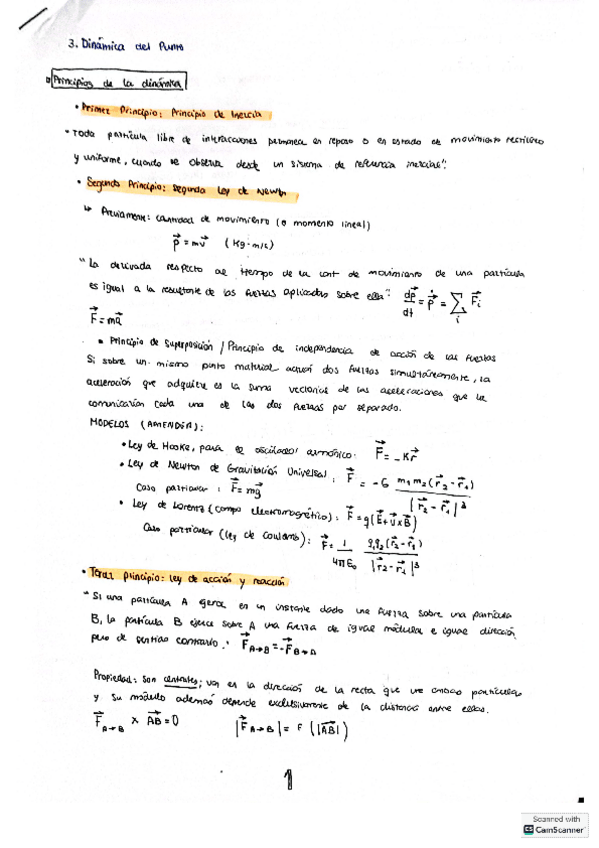 3. Dinámica del Punto
Principios de la dinámica
• Primer Principio: Principio de Inercia
"Toda partícula libre de interacciones permanece en reposo o en estado de movimiento rectilíneo
y uniforme, cuando se observa desde un sistema de referencia inercial".
• Segundo Principio: Segunda Ley de Newton
↳ Previamente: cantidad de movimiento (o momento lineal)
p⃗ = mv⃗ (Kg·m/s)
"La derivada respecto al tiempo de la cant de movimiento de una partícula
es igual a la resultante de las fuerzas aplicadas sobre ella" dp⃗/dt = p⃗̇ = Σᵢ F⃗ᵢ
F⃗ = ma⃗
• Principio de Superposición / Principio de independencia de acción de las fuerzas
Si sobre un mismo punto material actúan dos fuerzas simultáneamente, la
aceleración que adquiere es la suma vectorial de las aceleraciones que le
comunicarían cada una de las dos fuerzas por separado.
MODELOS (APRENDER):
• Ley de Hooke, para el oscilador armónico: F⃗ = -Kr⃗
• Ley de Newton de Gravitación Universal: F⃗ = -G m₁m₂(r⃗₂-r⃗₁) / |r⃗₂-r⃗₁|³
Caso particular: F⃗ = mg⃗
• Ley de Lorentz (campo electromagnético): F⃗ = q(E⃗+v⃗×B⃗)
Caso particular (Ley de Coulomb): F⃗ = 1/4πε₀ q₁q₂(r⃗₂-r⃗₁) / |r⃗₂-r⃗₁|³
• Tercer principio: Ley de acción y reacción
"Si una partícula A ejerce en un instante dado una fuerza sobre una partícula
B, la partícula B ejerce sobre A una fuerza de igual módulo e igual dirección
pero de sentido contrario." F⃗A→B = -F⃗B→A
Propiedad: Son centrales; van en la dirección de la recta que une ambas partículas
y su módulo además depende exclusivamente de la distancia entre ellas.
F⃗A→B × AB⃗ = 0 |F⃗A→B| = F(|AB⃗|)
1
Scanned with
CS CamScanner